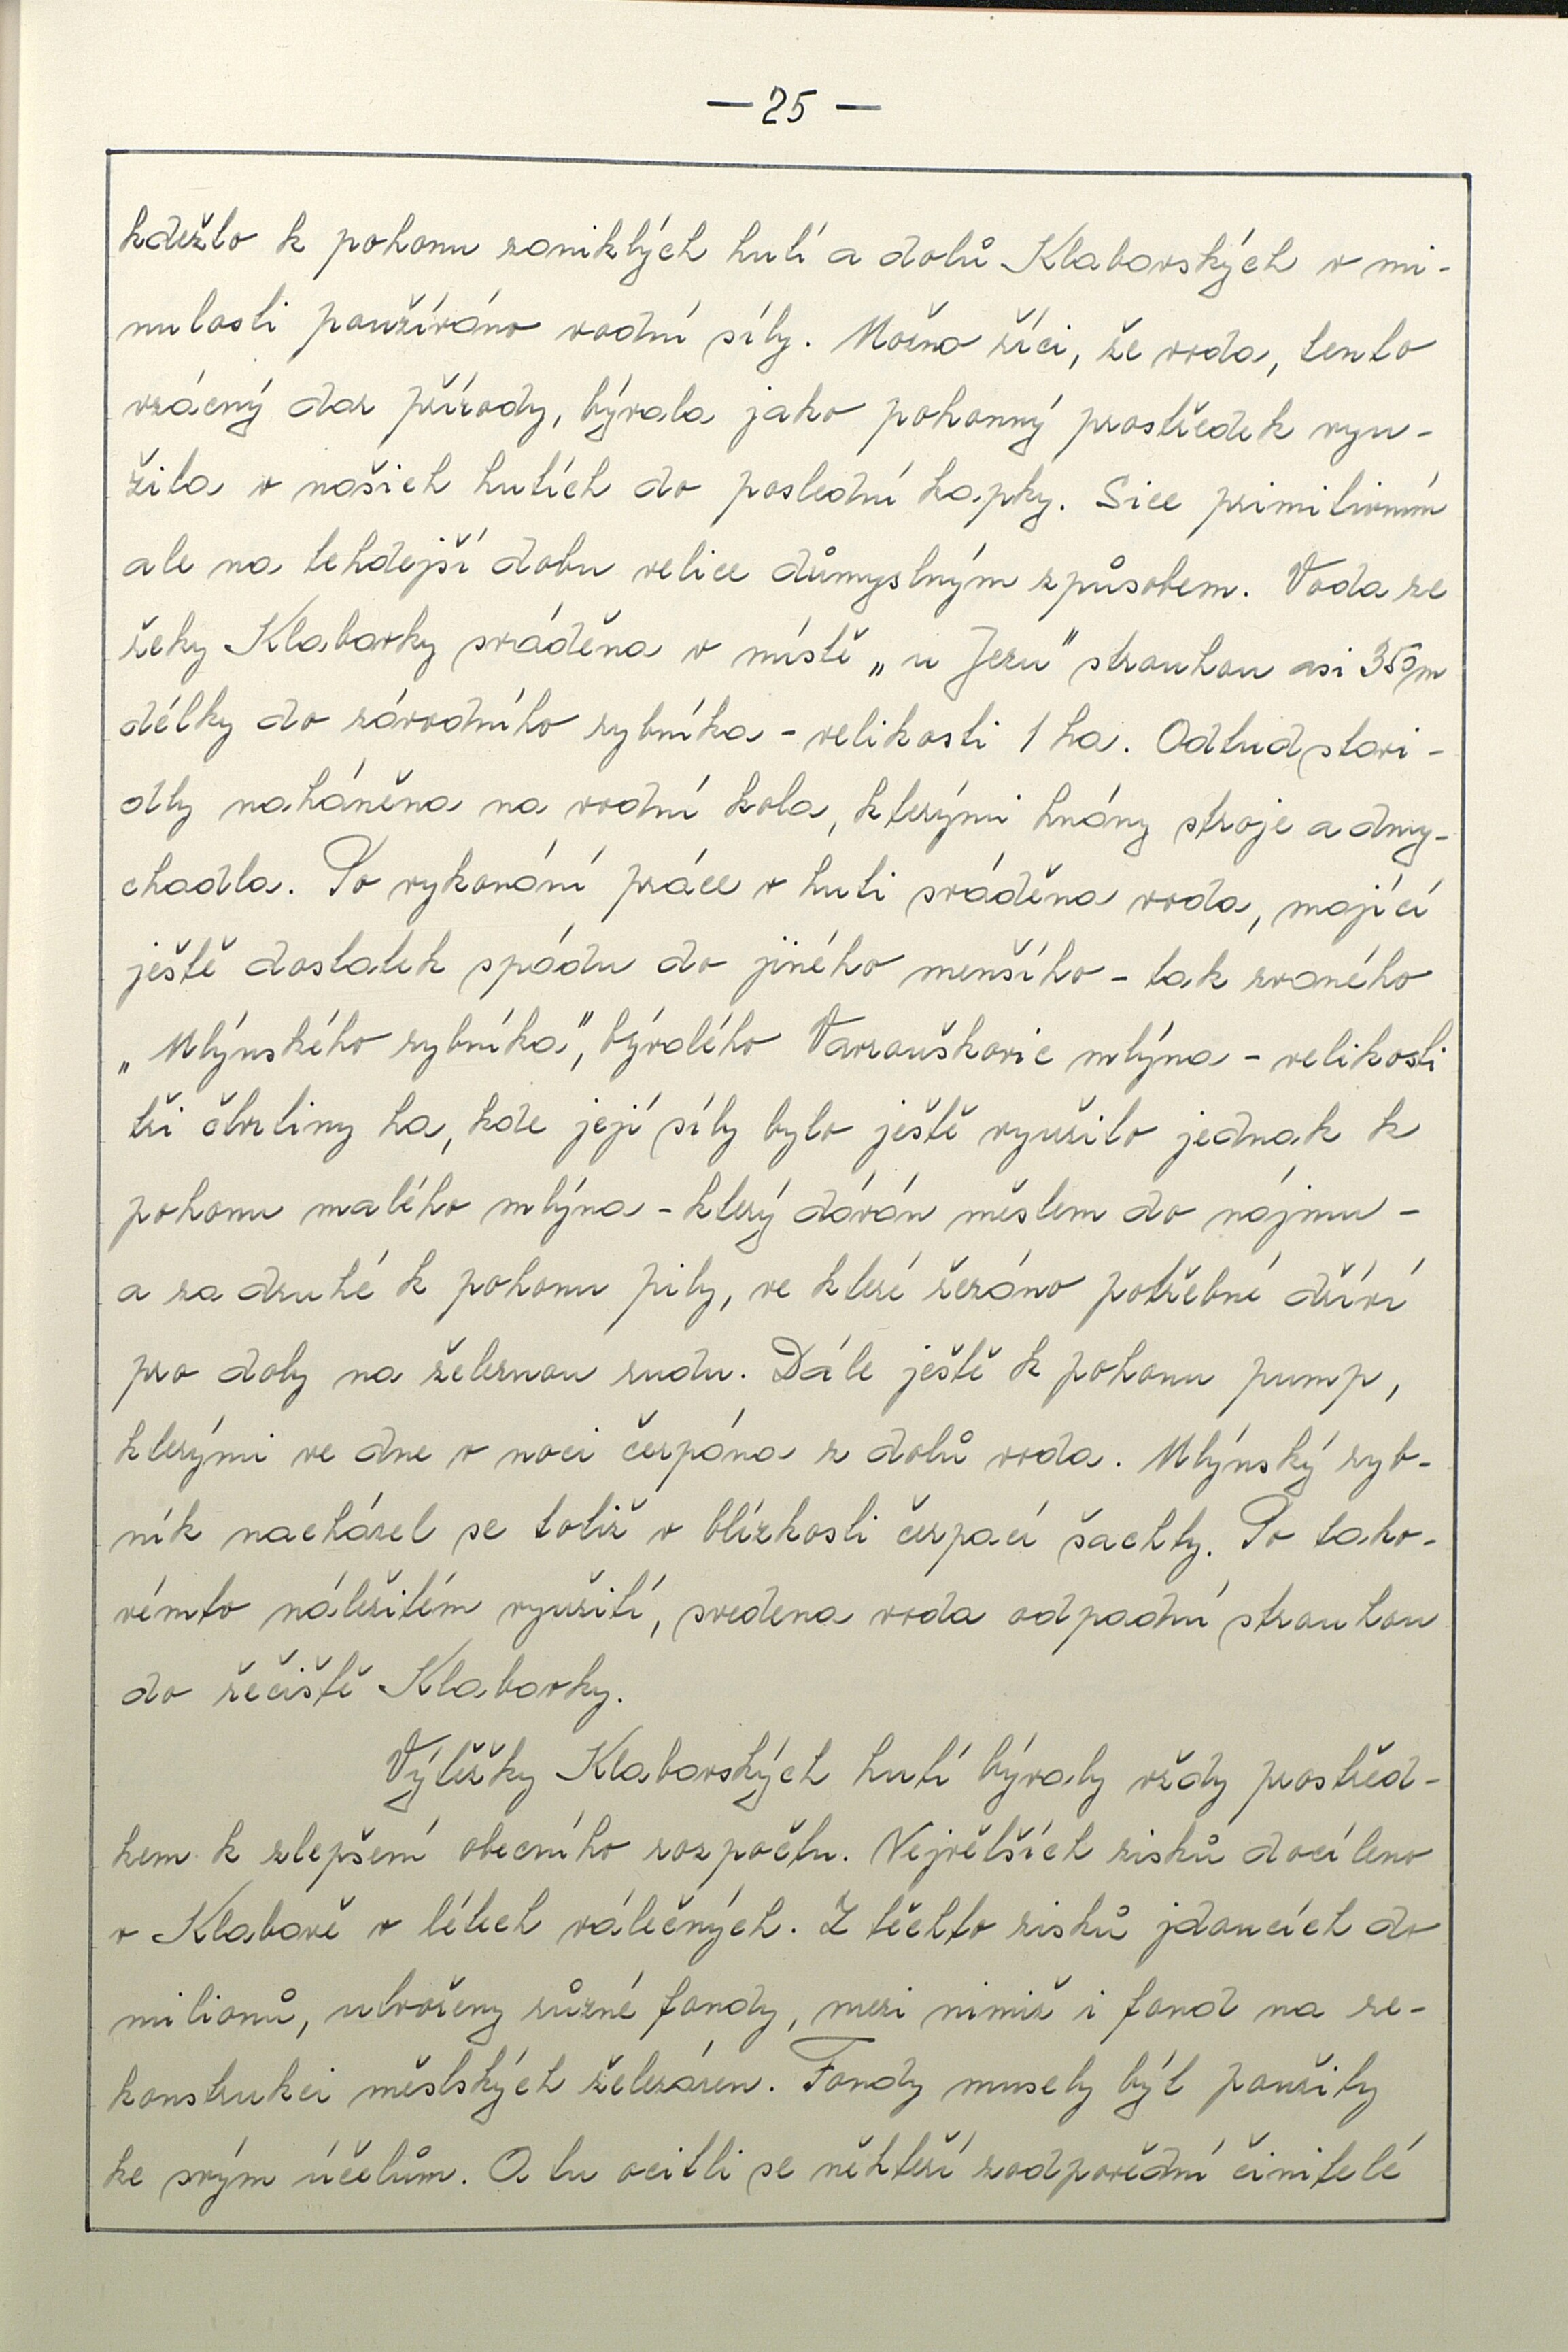 — 25 —
kdežto k pohonu zaniklých hutí a dolů Klabavských v mi-
nulosti používáno vodní síly. Možno říci, že voda, tento
vzácný dar přírody, bývala jako pohonný prostředek vyu-
žita v našich hutích do poslední kapky. Sice primitivním
ale na tehdejší dobu velice důmyslným způsobem. Voda ze
řeky Klabavky sváděna v místě „u Jezu" strouhou asi 350 m
délky do závodního rybníka - velikosti 1 ha. Odtud stavi-
dly naháněna na vodní kola, kterými hnány stroje a dmy-
chadla. Po vykonání práce v huti sváděna voda, mající
ještě dostatek spádu do jiného menšího - tak zvaného
„Mlýnského rybníka", bývalého Vavrouškovic mlýna - velikosti
tři čtvrtiny ha, kde její síly bylo ještě využito jednak k
pohonu malého mlýna - který dáván městem do nájmu -
a za druhé k pohonu pily, ve které řezáno potřebné dříví
pro doly na železnou rudu. Dále ještě k pohonu pump,
kterými ve dne v noci čerpána z dolů voda. Mlýnský ryb-
ník nacházel se totiž v blízkosti čerpací šachty. Po tako-
vémto náležitém využití, svedena voda odpadní strouhou
do řečiště Klabavky.
Výtěžky Klabavských hutí bývaly vždy prostřed-
kem k zlepšení obecního rozpočtu. Největších zisků docíleno
v Klabavě v létech válečných. Z těchto zisků jdoucích do
milionů, utvořeny různé fondy, mezi nimiž i fond na re-
konstrukci městských železáren. Fondy musely být použity
ke svým účelům. A tu ocitli se někteří zodpovědní činitelé